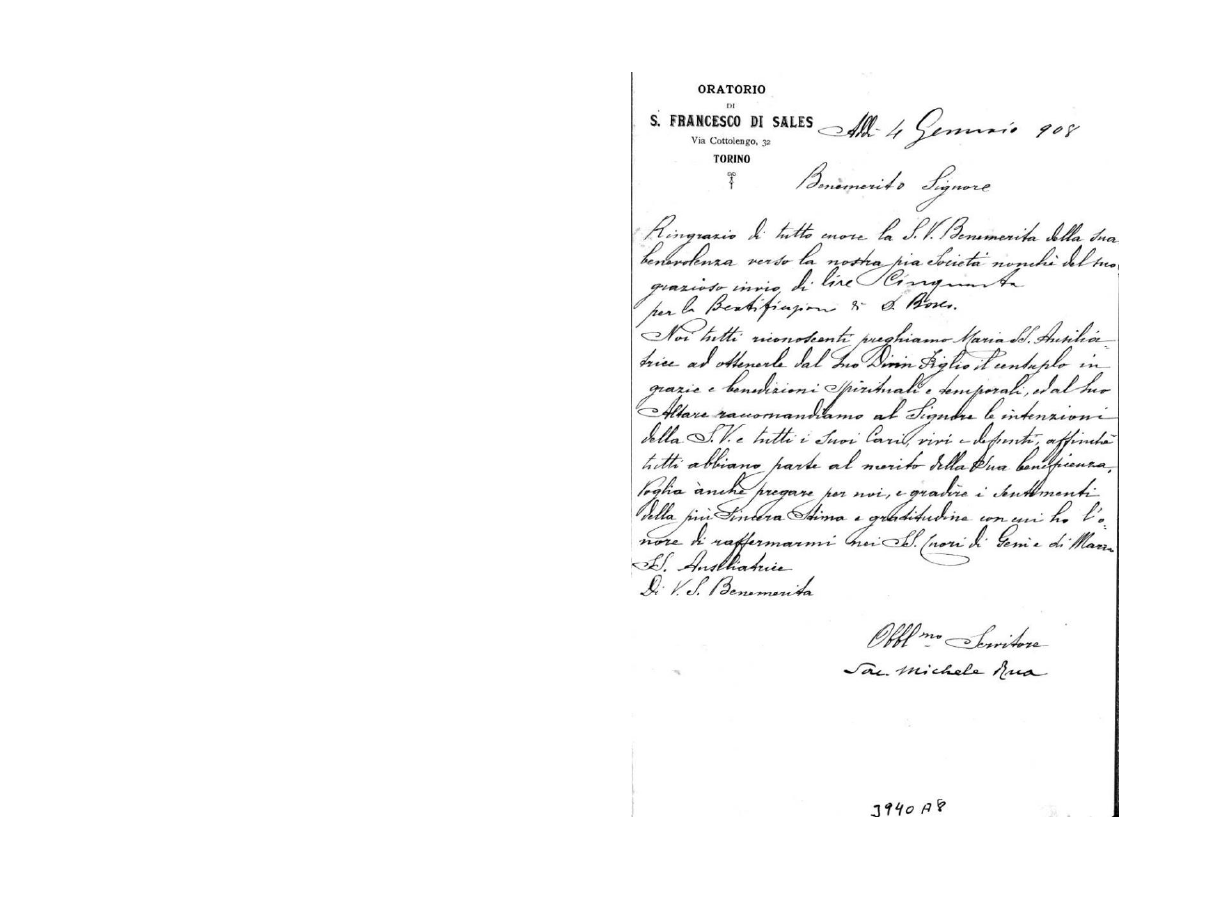 ORATORIO
DI
S. FRANCESCO DI SALES
Via Cottolengo, 32
TORINO
Addì 4 Gennaio 908
Benemerito Signore
Ringrazio di tutto cuore la S. V. Benemerita della sua
benevolenza verso la nostra pia Società nonchè del suo
grazioso invio di lire Cinquanta
per la Beatificazione di D. Bosco.
Noi tutti riconoscenti preghiamo Maria SS. Ausilia-
trice ad ottenerle dal Suo Divin Figlio il centuplo in
grazie e benedizioni Spirituali e temporali, ed al Suo
Altare raccomandiamo al Signore le intenzioni
della S. V. e tutti i Suoi Cari, vivi e defunti, affinchè
tutti abbiano parte al merito della Sua beneficenza.
Voglia anche pregare per noi, e gradire i Sentimenti
della più Sincera Stima e gratitudine con cui ho l'o-
nore di raffermarmi nei SS. Cuori di Gesù e di Maria
SS. Ausiliatrice
Di V. S. Benemerita
Obbl.mo Servitore
Sac. Michele Rua
3940 A8